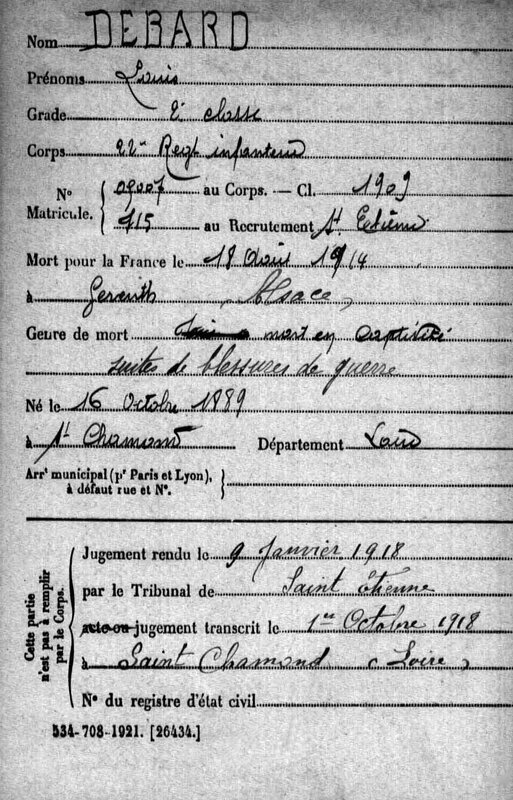 Nom DEBARD
Prénoms Louis
Grade 2e classe
Corps 22me Regt infanterie
No Matricule. 09007 au Corps. — Cl. 1909
715 au Recrutement St Etienne
Mort pour la France le 18 Août 1914
à (Alsace)
Genre de mort mort en captivité
suites de blessures de guerre
Né le 16 Octobre 1889
à St Chamond Département Loire
Arrt municipal (pr Paris et Lyon),
à défaut rue et No.
Cette partie
n'est pas à remplir
par le Corps.
Jugement rendu le 9 Janvier 1918
par le Tribunal de Saint Etienne
acte ou jugement transcrit le 1er Octobre 1918
à Saint Chamond (Loire)
No du registre d'état civil
534-708-1921. [26434.]